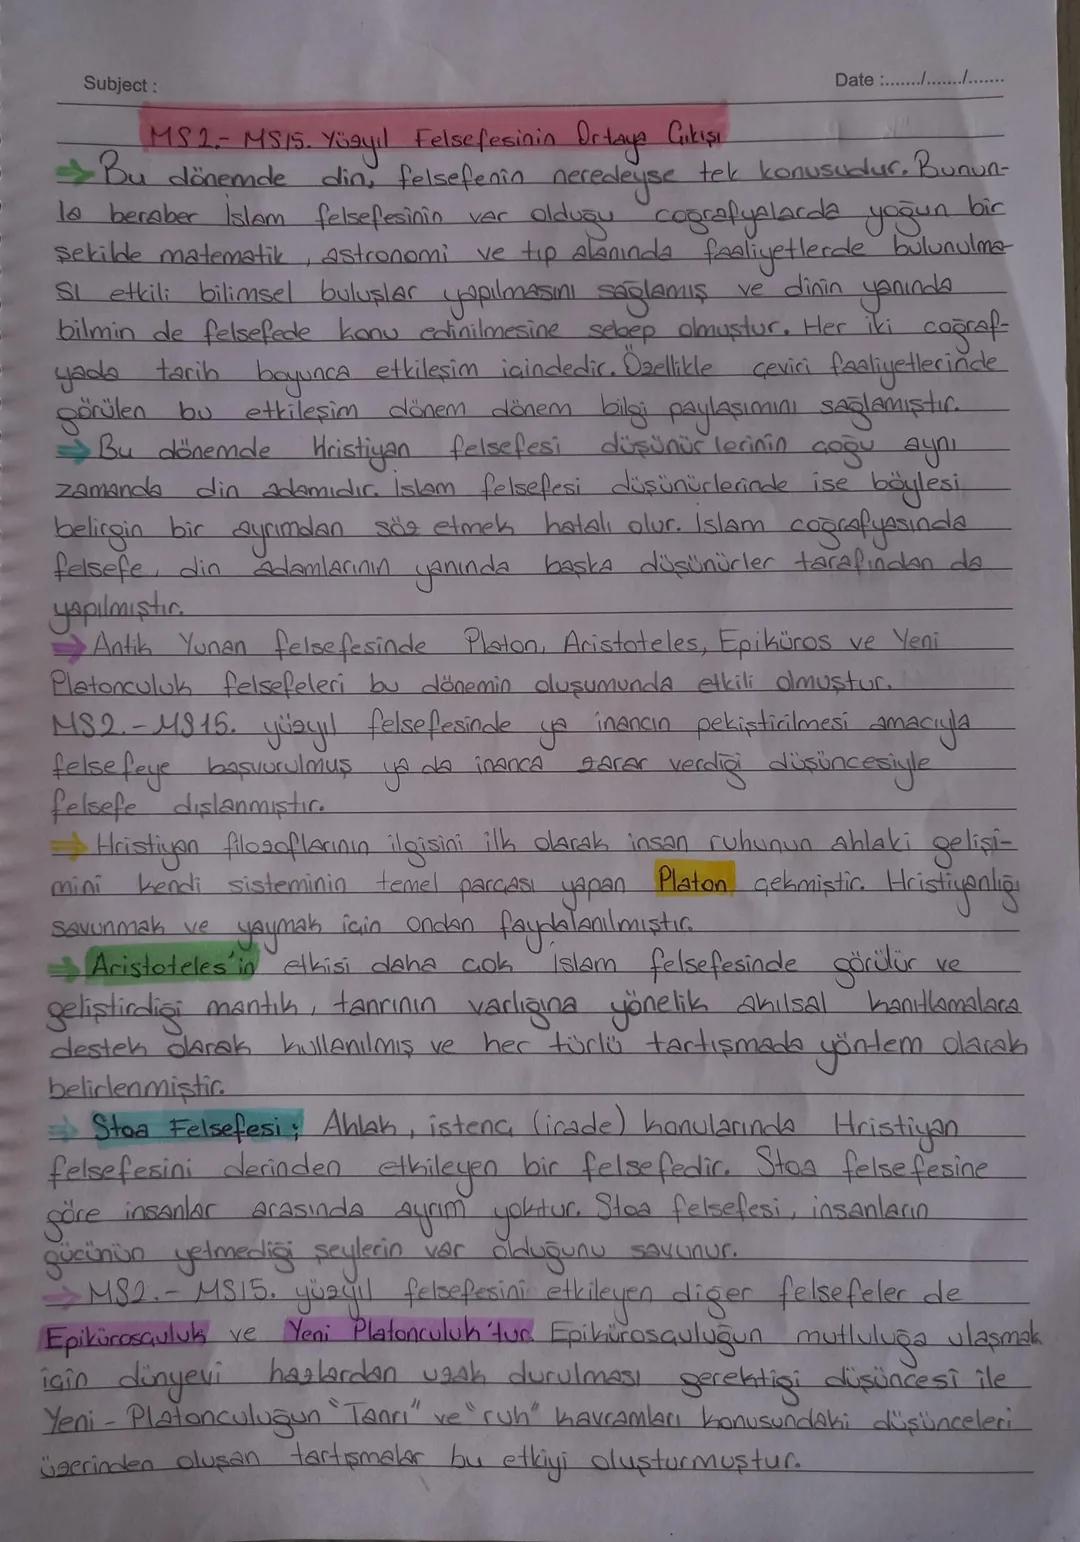 Subject :
Date :......./......./.......
MS2.- MS15. Yüzyıl Felsefesinin Ortaya Çıkışı
⇒ Bu dönemde din, felsefenin neredeyse tek konusudur. Bunun-
la beraber İslam felsefesinin var olduğu coğrafyalarda yoğun bir
şekilde matematik, astronomi ve tıp alanında faaliyetlerde bulunulma-
sı etkili bilimsel buluşlar yapılmasını sağlamış ve dinin yanında
bilmin de felsefede konu edinilmesine sebep olmuştur. Her iki coğraf-
yada tarih boyunca etkileşim içindedir. Özellikle çeviri faaliyetlerinde
görülen bu etkileşim dönem dönem bilgi paylaşımını sağlamıştır.
⇒ Bu dönemde Hristiyan felsefesi düşünürlerinin çoğu aynı
zamanda din adamıdır. İslam felsefesi düşünürlerinde ise böylesi
belirgin bir ayrımdan söz etmek hatalı olur. İslam coğrafyasında
felsefe, din adamlarının yanında başka düşünürler tarafından da
yapılmıştır.
⇒ Antik Yunan felsefesinde Platon, Aristoteles, Epiküros ve Yeni
Platonculuk felsefeleri bu dönemin oluşumunda etkili olmuştur.
MS2.-MS15. yüzyıl felsefesinde ya inancın pekiştirilmesi amacıyla
felsefeye başvurulmuş ya da inanca zarar verdiği düşüncesiyle
felsefe dışlanmıştır.
⇒ Hristiyan filozoflarının ilgisini ilk olarak insan ruhunun ahlaki gelişi-
mini kendi sisteminin temel parçası yapan Platon çekmiştir. Hristiyanlığı
savunmak ve yaymak için ondan faydalanılmıştır.
⇒ Aristoteles'in etkisi daha çok İslam felsefesinde görülür ve
geliştirdiği mantık, tanrının varlığına yönelik akılsal kanıtlamalara
destek olarak kullanılmış ve her türlü tartışmada yöntem olarak
belirlenmiştir.
⇒ Stoa Felsefesi; Ahlak, istenç (irade) konularında Hristiyan
felsefesini derinden etkileyen bir felsefedir. Stoa felsefesine
göre insanlar arasında ayrım yoktur. Stoa felsefesi, insanların
gücünün yetmediği şeylerin var olduğunu savunur.
⇒ MS2.- MS15. yüzyıl felsefesini etkileyen diğer felsefeler de
Epikürosçuluk ve Yeni Platonculuk'tur. Epikürosçuluğun mutluluğa ulaşmak
için dünyevi hazlardan uzak durulması gerektiği düşüncesi ile
Yeni - Platonculuğun "Tanrı" ve "ruh" kavramları konusundaki düşünceleri
üzerinden oluşan tartışmalar bu etkiyi oluşturmuştur.